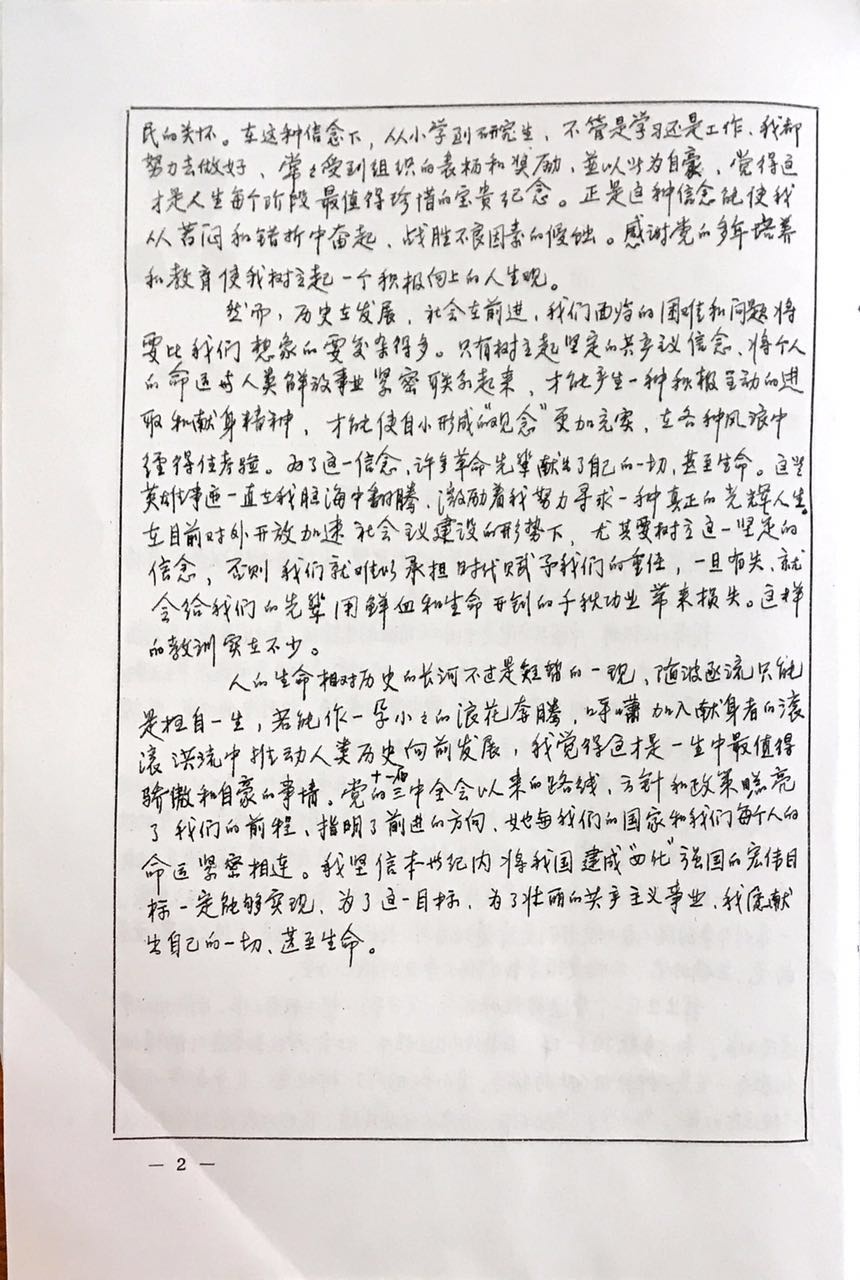 民的关怀。在这种信念下，从小学到研究生，不管是学习还是工作，我都
努力去做好，常々受到组织的表杨和奖励，並以此为自豪，觉得这
才是人生每个阶段最值得珍惜的宝贵纪念。正是这种信念能使我
从苦闷和错折中奋起，战胜不良因素的侵蚀。感谢党的多年培养
和教育使我树立起一个积极向上的人生观。
然而，历史在发展，社会在前进，我们面临的困难和问题将
要比我们想象的要复杂得多。只有树立起坚定的共产主义信念、将个人
的命运与人类解放事业紧密联系起来，才能产生一种积极主动的进
取和献身精神，才能使自小形成的“观念”更加充实，在各种风浪中
经得住考验。为了这一信念，许多革命先辈献出了自己的一切，甚至生命。这些
英雄事迹一直在我脑海中翻腾，激励着我努力寻求一种真正的光辉人生。
在目前对外开放加速社会主义建设的形势下，尤其要树立这一坚定的
信念，否则我们就难以承担时代赋予我们的重任，一旦有失，就
会给我们的先辈用鲜血和生命开创的千秋功业带来损失。这样
的教训实在不少。
人的生命相对历史的长河不过是短暂的一现，随波逐流只能
是枉自一生，若能作一朵小々的浪花奔腾，呼啸加入献身者的滚
滚洪流中推动人类历史向前发展，我觉得这才是一生中最值得
骄傲和自豪的事情。党的十一届三中全会以来的路线，方针和政策照亮
了我们的前程，指明了前进的方向，她与我们的国家和我们每个人的
命运紧密相连。我坚信本世纪内将我国建成“四化”强国的宏伟目
标一定能够实现，为了这一目标，为了壮丽的共产主义事业，我愿献
出自己的一切、甚至生命。
— 2 —